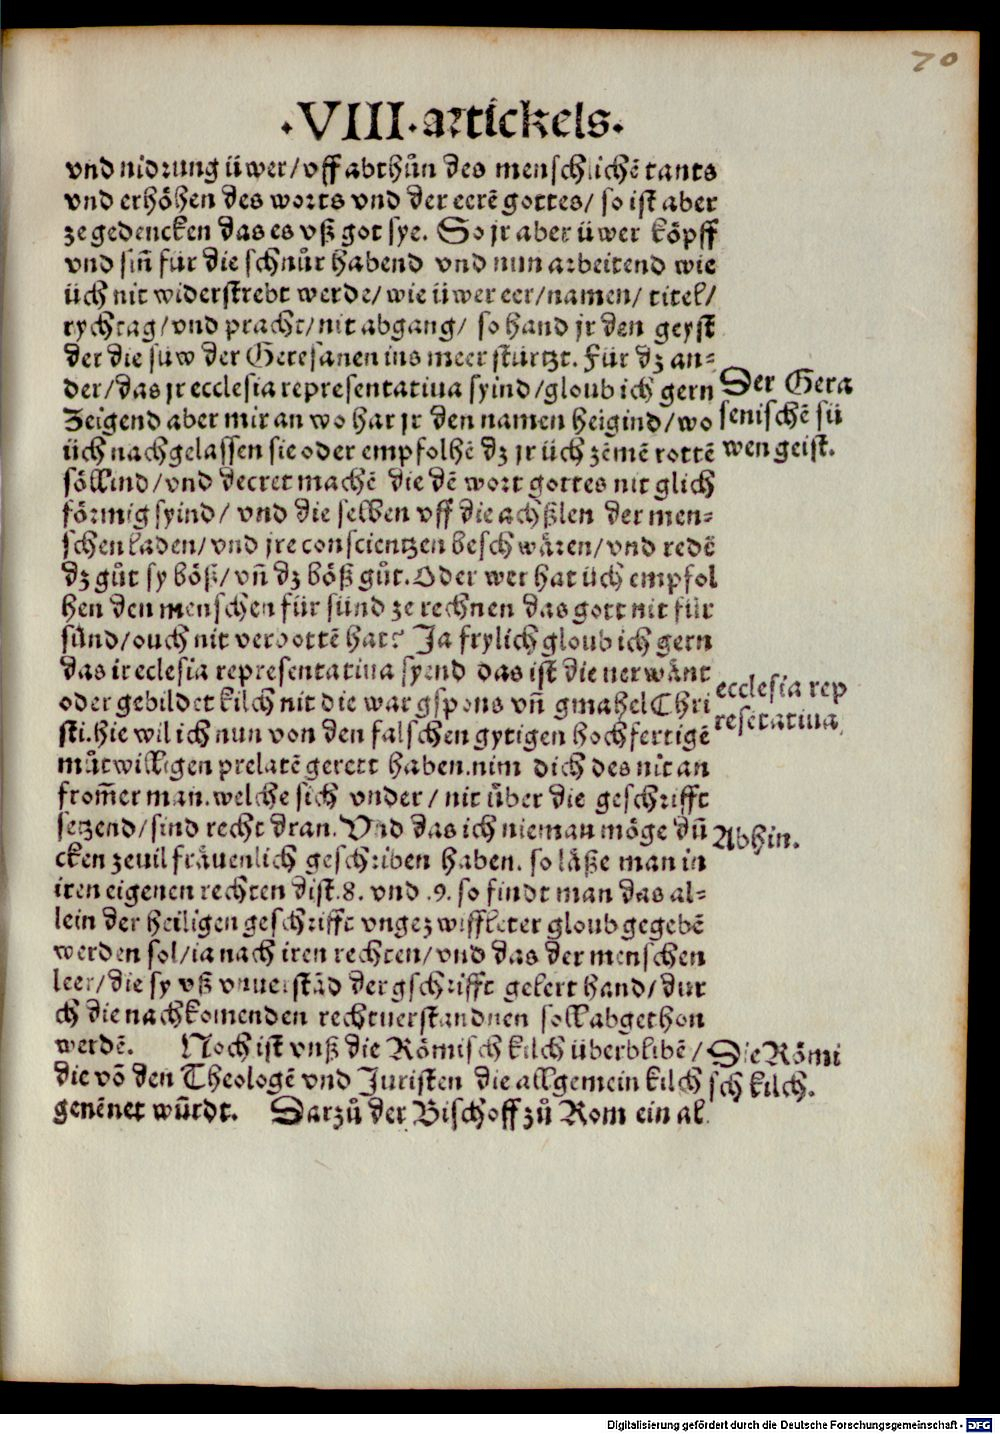 70
·VIII·artickels.
vnd nidrung üwer/vff abthůn des menschlichē tants
vnd erhöhen des worts vnd der eerē gottes/ so ist aber
ze gedencken das es vß got sye. So jr aber üwer köpff
vnd siñ für die schnůr habend vnd nun arbeitend wie
üch nit widerstrebt werde/ wie üwer eer/namen/ titel/
rychtag/vnd pracht/nit abgang/ so hand jr den geyst
der die süw der Geresanen ins meer stürtzt. Für dz an⸗
der/das jr ecclesia representatiua syind/gloub ich gern
Zeigend aber mir an wo har jr den namen heigind/wo
üch nachgelassen sie oder empfolhē dz jr üch zēmē rottē
söllind/vnd decret machē die dē wort gottes nit glich
förmig syind/ vnd die selben vff die achßlen der men⸗
schen laden/vnd jre conscientzen beschwären/vnd redē
dz gůt sy böß/vñ dz böß gůt. Oder wer hat üch empfol
hen den menschen für sünd ze rechnen das gott nit für
sünd/ouch nit verbottē hat? Ja frylich gloub ich gern
das ir eclesia representatiua syend das ist die uerwänt
oder gebildet kilch nit die war gspons vñ gmahel Chri
sti.hie wil ich nun von den falschen gytigen hochfertigē
můtwilligen prelatē gerett haben.nim dich des nit an
from̄er man.welche sich vnder/ nit über die geschrifft
setzend/sind recht dran. Vnd das ich nieman möge dũ
cken ze uil fräuenlich geschriben haben. so läße man in
iren eigenen rechten dist.8. vnd .9. so findt man das al⸗
lein der heiligen geschrifft vngezwiffleter gloub gegebē
werden sol/ia nach iren rechten/vnd das der menschen
leer/die sy vß vnuerstād der gschrifft gelert hand/dur
ch die nachkomenden rechtuerstandnen soll abgethon
werdē. Noch ist vnß die Römisch kilch überblibē/
die vō den Theologē vnd Juristen die allgemein kilch
genēnet würdt. Darzů der Bischoff zů Rom ein al
Der Gera
senischē sü
wen geist.
ecclesia rep
resētatiua
Abhin.
Die Römi
sch kilch.
Digitalisierung gefördert durch die Deutsche Forschungsgemeinschaft - DFG